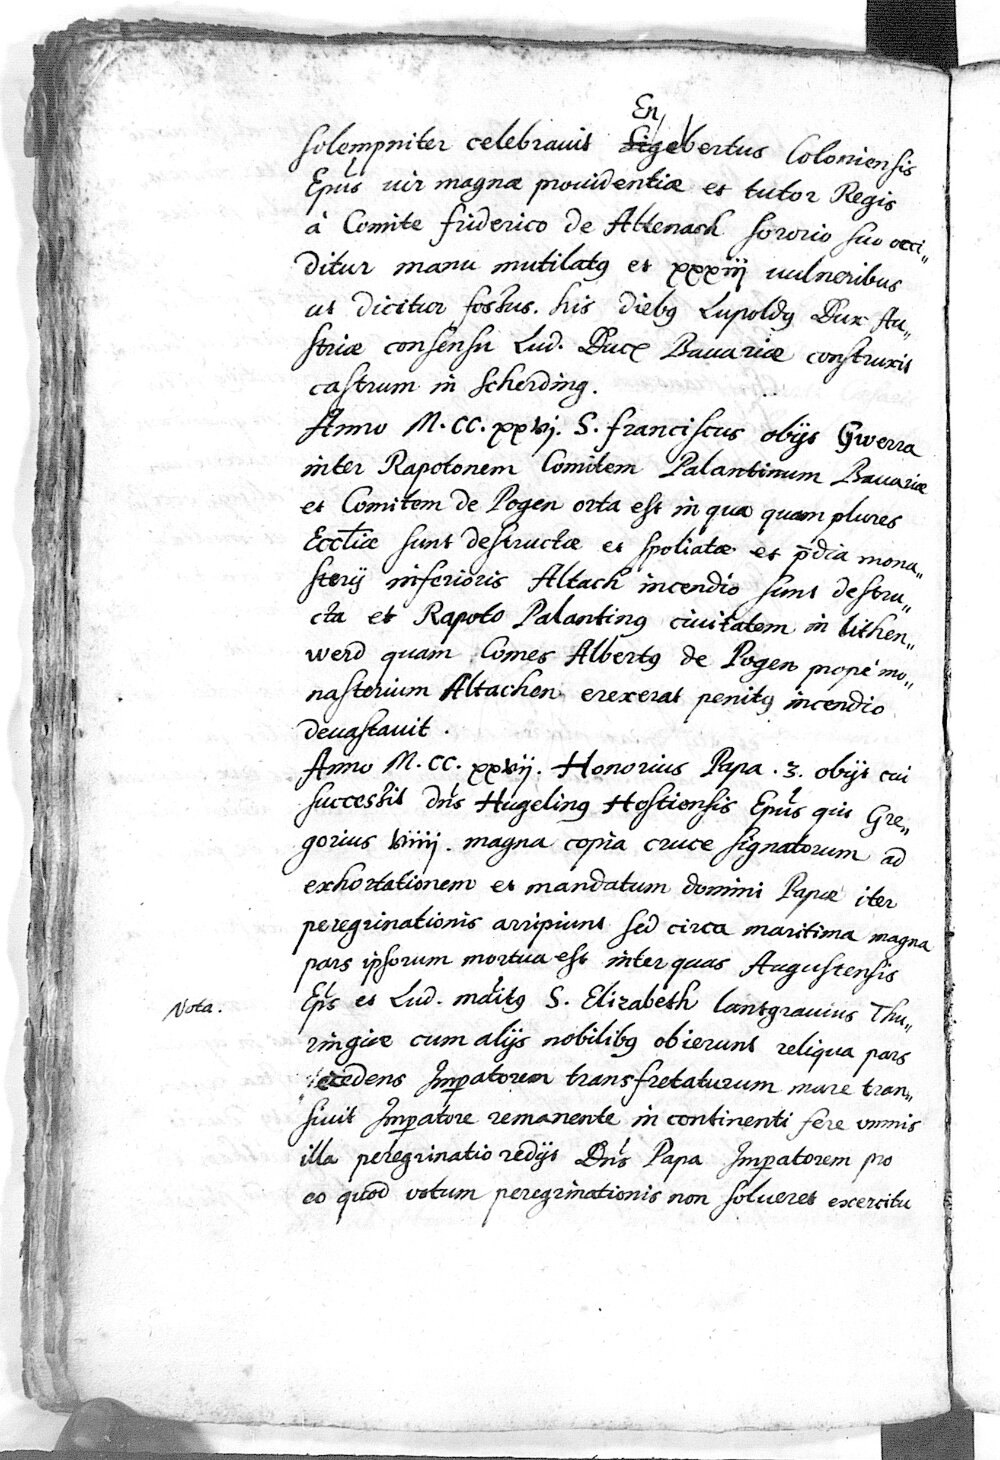 En
solempniter celebravit Sigebertus Coloniensis
Ep̃us vir magnæ prouidentiæ et tutor Regis
à Comite friderico de Altenach sororio suo occi„
ditur manu mutilatꝰ et xxxiij vulneribus
ut dicitur fossus. his diebꝰ Lupoldꝰ Dux Au„
striæ consensu Lud. Ducꝭ Bauariæ construxit
castrum in Scherding.
Anno M. CC. xxvj. S. franciscus obijt Gwerra
inter Rapotonem Comitem Palantinum Bavariæ
et Comitem de Pogen orta est in qua quam plures
Eccl̃iæ sunt destructæ et spoliatæ et p̃dia mona„
sterij inferioris Altach incendio sunt destru„
cta et Rapoto Palantinꝰ ciuitatem in lithen„
werd quam Comes Albertꝰ de Pogen propè mo„
nasterium Altachen erexerat penitꝰ incendio
deuastauit.
Anno M. CC. xxvij. Honorius Papa . 3. obijt cui
successit dñs Hugelinꝰ Hostiensis Ep̃us qui Gre„
gorius viiij. magna copia cruce signatorum ad
exhortationem et mandatum domini Papæ iter
peregrinationis arripiunt sed circa maritima magna
pars ipsorum mortua est inter quas Augustensis
Nota. Ep̃s et Lud. maritꝰ S. Elizabeth lantgrauius Thu„
ringiæ cum alijs nobilibꝰ obierunt reliqua pars
credens Imp̃atorem transfretaturum mare tran„
siuit Imp̃atore remanente in continenti fere omnis
illa peregrinatio redijt Dñs Papa Imp̃atorem pro
eo quod votum peregrinationis non solueret exercitu